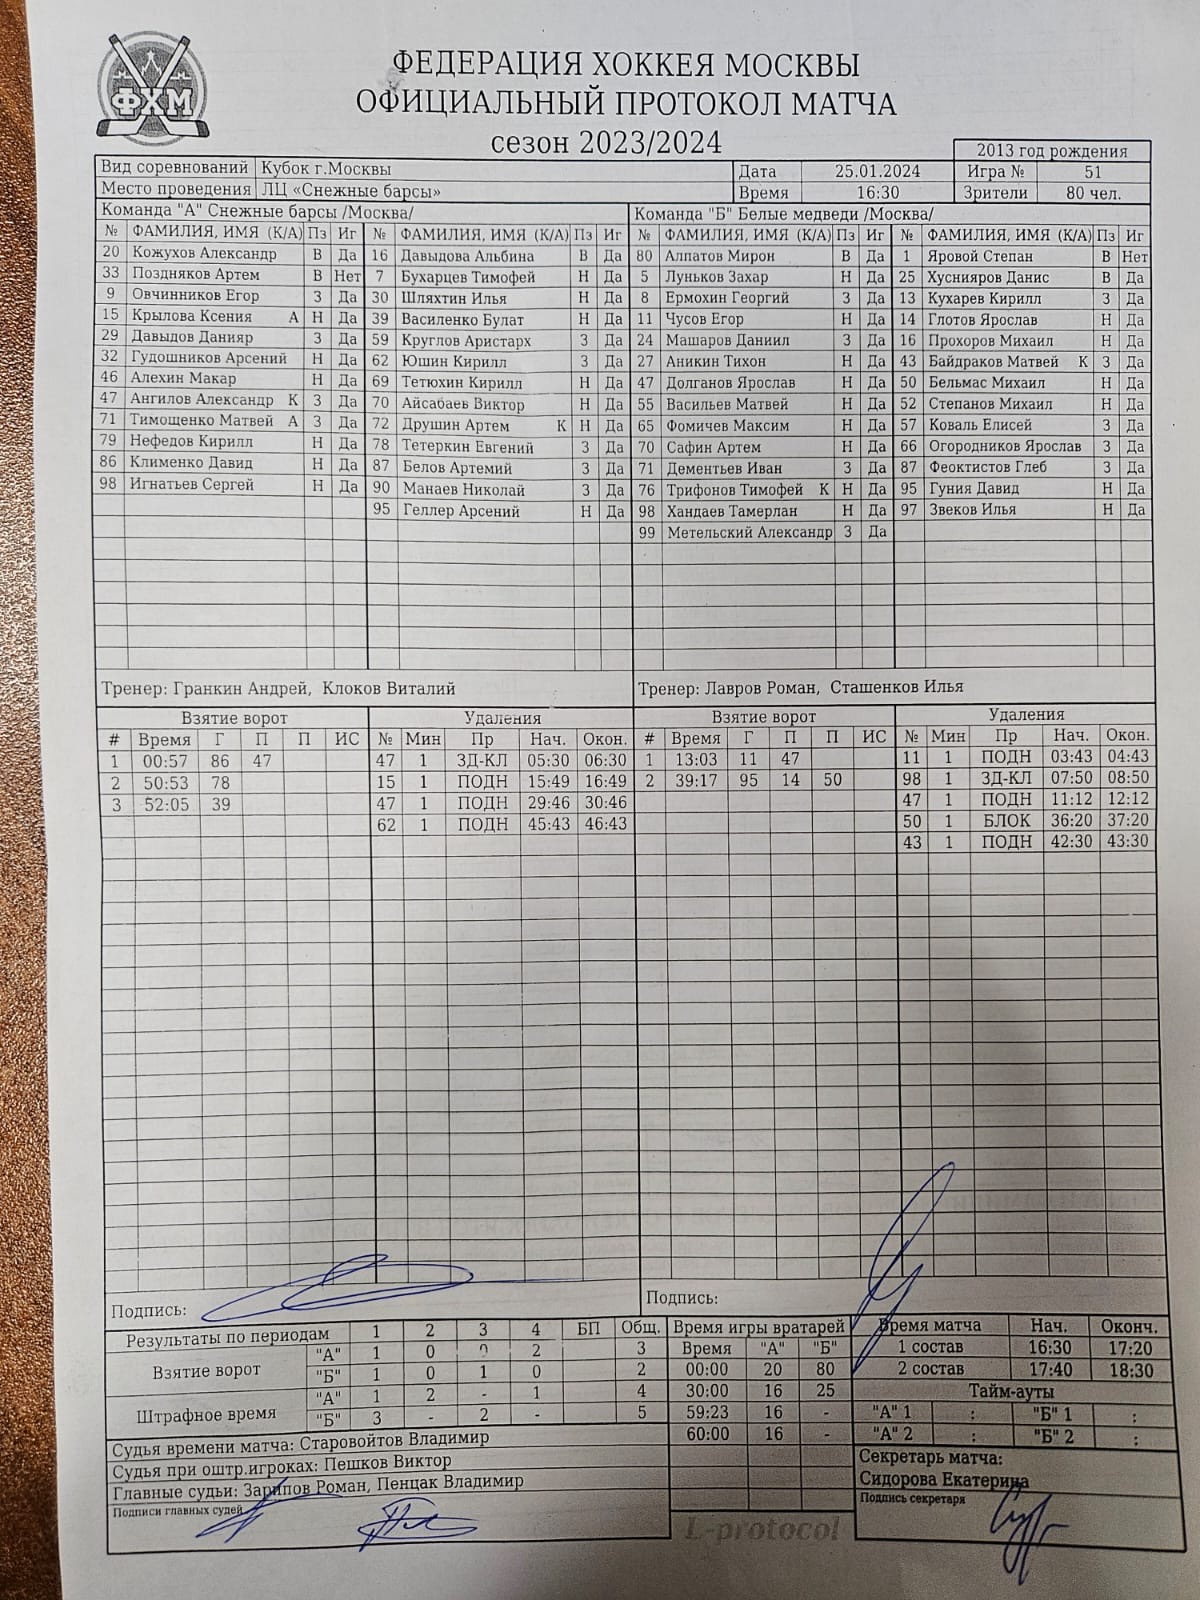 ФХМ
ФЕДЕРАЦИЯ ХОККЕЯ МОСКВЫ
ОФИЦИАЛЬНЫЙ ПРОТОКОЛ МАТЧА
сезон 2023/2024
2013 год рождения
Вид соревнований Кубок г.Москвы Дата 25.01.2024 Игра № 51
Место проведения ЛЦ «Снежные барсы» Время 16:30 Зрители 80 чел.
Команда "А" Снежные барсы /Москва/ Команда "Б" Белые медведи /Москва/
№ ФАМИЛИЯ, ИМЯ (К/А) Пз Иг № ФАМИЛИЯ, ИМЯ (К/А) Пз Иг № ФАМИЛИЯ, ИМЯ (К/А) Пз Иг № ФАМИЛИЯ, ИМЯ (К/А) Пз Иг
20 Кожухов Александр В Да 16 Давыдова Альбина В Да 80 Алпатов Мирон В Да 1 Яровой Степан В Нет
33 Поздняков Артем В Нет 7 Бухарцев Тимофей Н Да 5 Луньков Захар Н Да 25 Хуснияров Данис В Да
9 Овчинников Егор З Да 30 Шляхтин Илья Н Да 8 Ермохин Георгий З Да 13 Кухарев Кирилл З Да
15 Крылова Ксения А Н Да 39 Василенко Булат Н Да 11 Чусов Егор Н Да 14 Глотов Ярослав Н Да
29 Давыдов Данияр З Да 59 Круглов Аристарх З Да 24 Машаров Даниил З Да 16 Прохоров Михаил Н Да
32 Гудошников Арсений Н Да 62 Юшин Кирилл З Да 27 Аникин Тихон Н Да 43 Байдраков Матвей К З Да
46 Алехин Макар Н Да 69 Тетюхин Кирилл Н Да 47 Долганов Ярослав Н Да 50 Бельмас Михаил Н Да
47 Ангилов Александр К З Да 70 Айсабаев Виктор Н Да 55 Васильев Матвей Н Да 52 Степанов Михаил Н Да
71 Тимощенко Матвей А З Да 72 Друшин Артем К Н Да 65 Фомичев Максим Н Да 57 Коваль Елисей З Да
79 Нефедов Кирилл Н Да 78 Тетеркин Евгений З Да 70 Сафин Артем Н Да 66 Огородников Ярослав З Да
86 Клименко Давид Н Да 87 Белов Артемий З Да 71 Дементьев Иван З Да 87 Феоктистов Глеб З Да
98 Игнатьев Сергей Н Да 90 Манаев Николай З Да 76 Трифонов Тимофей К Н Да 95 Гуния Давид Н Да
95 Геллер Арсений Н Да 98 Хандаев Тамерлан Н Да 97 Звеков Илья Н Да
99 Метельский Александр З Да
Тренер: Гранкин Андрей, Клоков Виталий Тренер: Лавров Роман, Сташенков Илья
Взятие ворот Удаления Взятие ворот Удаления
# Время Г П П ИС № Мин Пр Нач. Окон. # Время Г П П ИС № Мин Пр Нач. Окон.
1 00:57 86 47 47 1 ЗД-КЛ 05:30 06:30 1 13:03 11 47 11 1 ПОДН 03:43 04:43
2 50:53 78 15 1 ПОДН 15:49 16:49 2 39:17 95 14 50 98 1 ЗД-КЛ 07:50 08:50
3 52:05 39 47 1 ПОДН 29:46 30:46 47 1 ПОДН 11:12 12:12
62 1 ПОДН 45:43 46:43 50 1 БЛОК 36:20 37:20
43 1 ПОДН 42:30 43:30
Подпись: Подпись:
Результаты по периодам 1 2 3 4 БП Общ. Время игры вратарей Время матча Нач. Оконч.
Взятие ворот "А" 1 0 0 2 3 Время "А" "Б" 1 состав 16:30 17:20
"Б" 1 0 1 0 2 00:00 20 80 2 состав 17:40 18:30
Штрафное время "А" 1 2 - 1 4 30:00 16 25 Тайм-ауты
"Б" 3 - 2 - 5 59:23 16 - "А" 1 : "Б" 1 :
60:00 16 - "А" 2 : "Б" 2 :
Судья времени матча: Старовойтов Владимир
Судья при оштр.игроках: Пешков Виктор
Главные судьи: Зарипов Роман, Пенцак Владимир
Подписи главных судей
Секретарь матча:
Сидорова Екатерина
Подпись секретаря
L-protocol